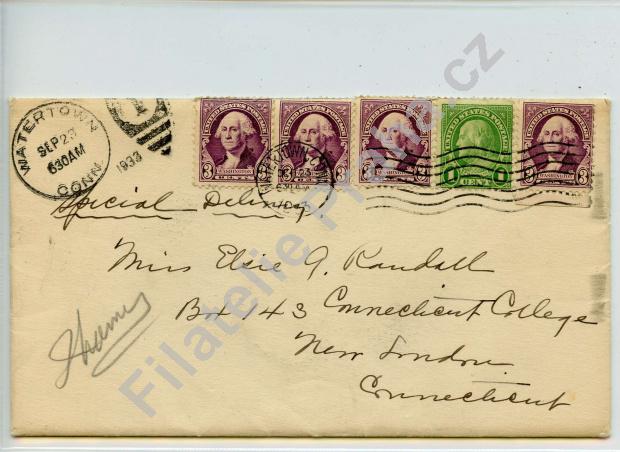 WATERTOWN
SEP 23
630AM
CONN.
1933
UNITED STATES POSTAGE
3 WASHINGTON 3
UNITED STATES POSTAGE
3 3
UNITED STATES POSTAGE
3 WASHINGTON 3
UNITED STATES POSTAGE
1 CENT 1
UNITED STATES POSTAGE
3 WASHINGTON 3
Special Delivery
Miss Elsie A. Randall
Bx 143 Connecticut College
New London
Connecticut
Filatelie Praha.cz